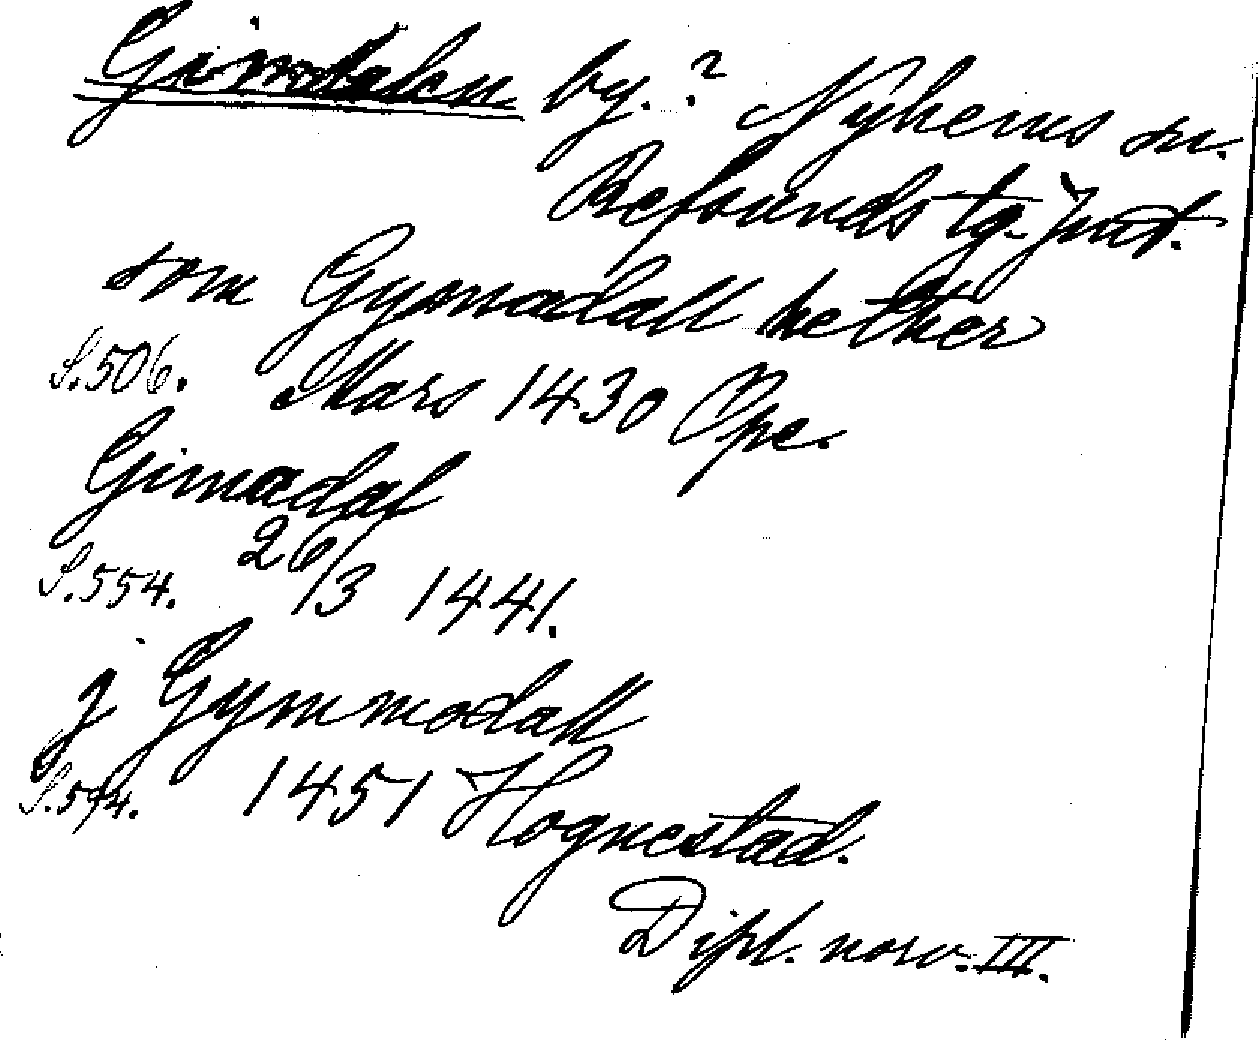 Gimdalen by.? Nyhems sn.
Refsunds tg. Jmt.
som Gymadall hether
S. 506. Mars 1430 Ope.
Gimadal
S. 554. 26/3 1441.
j Gymmodall
S. 594. 1451 Hognestad.
Dipl. norv. III.